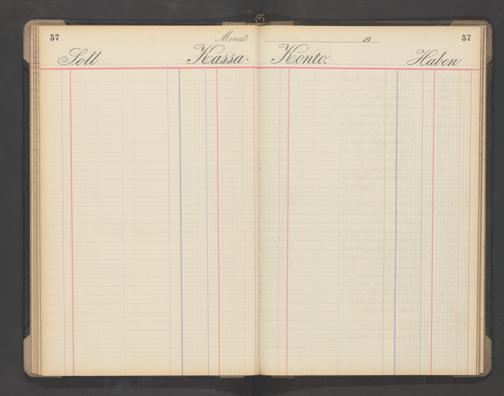 57 Monat 19 57
Soll Kassa- Konto. Haben